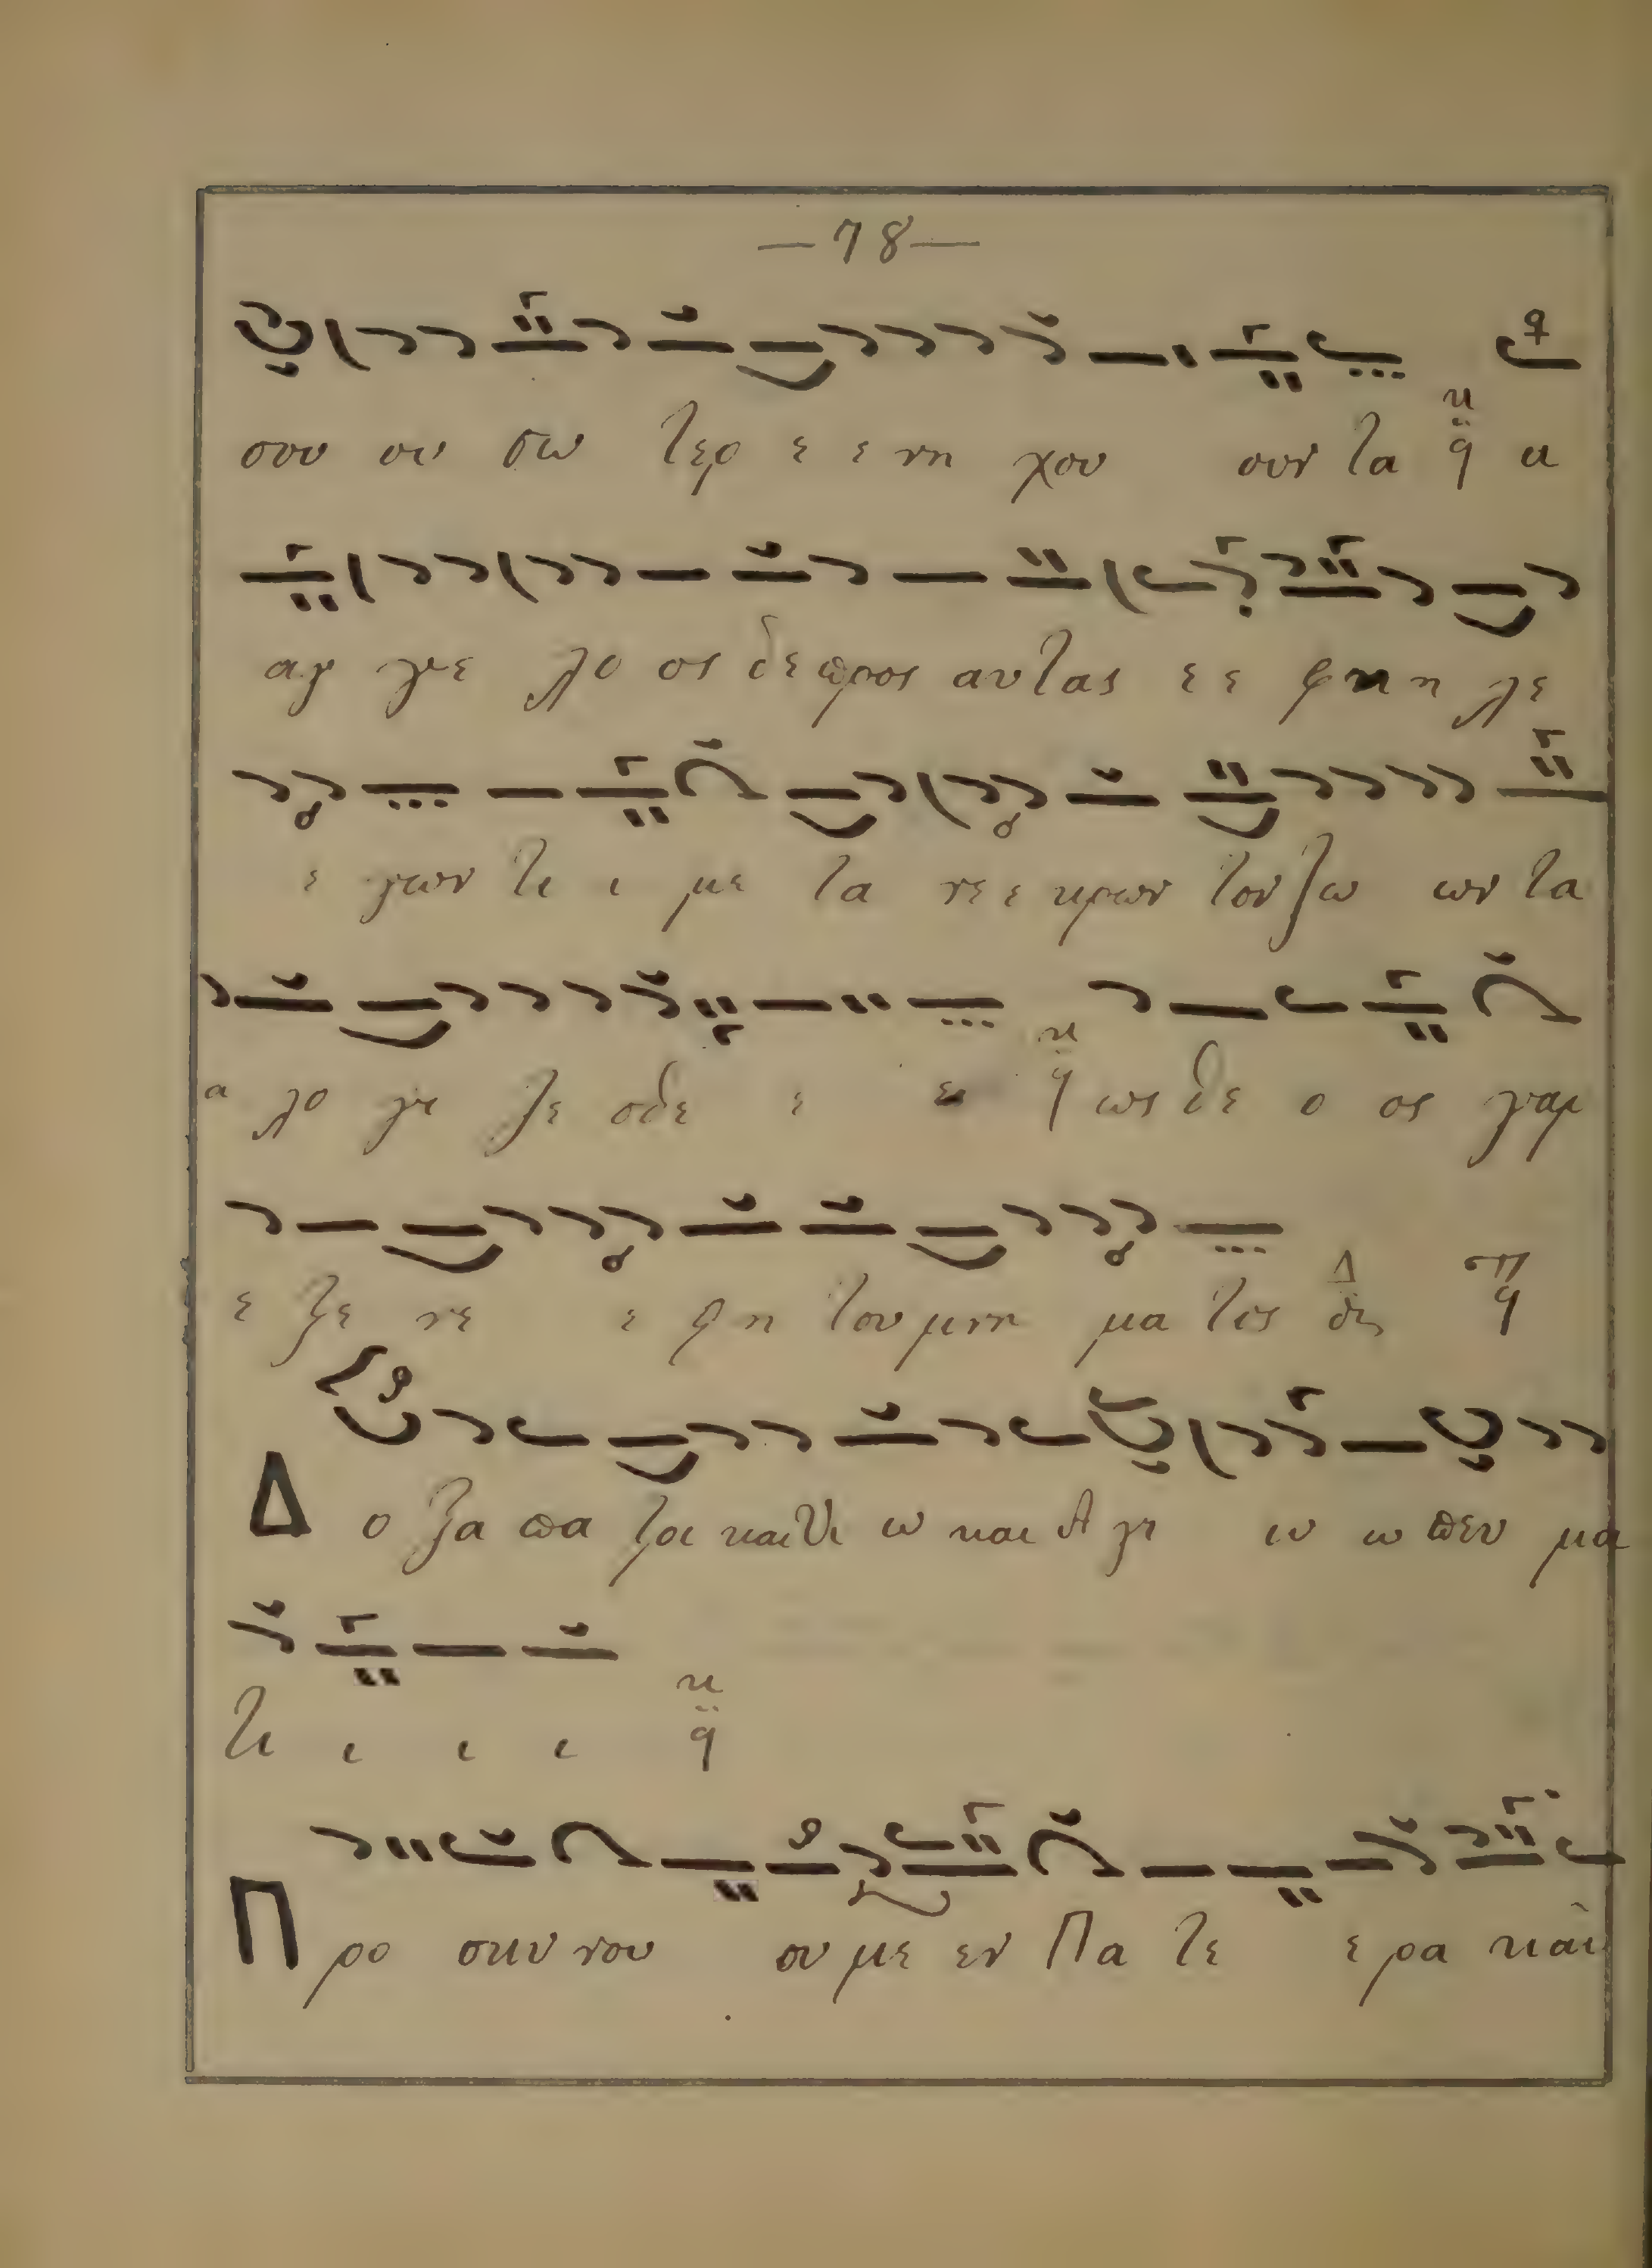 —78—
σου ου σω τερ ε ε νη χου ουν τα α
αγ γγε λο ος δε προς αυτας ε ε φη η λε
ε γων τι ι με τα νε ε κρων τον ζω ων τα
α λο γι ζε σθε ε ε ως θε ο ος γαρ
ε ξε νε ε φη του μνη μα τος Δι
Δ ο ξα πα τρι και Υι ω και Α γι ω ω πευ μα
τι ι ι ι
Π ρο σκυ νου ου με εν Πα τε ε ρα και